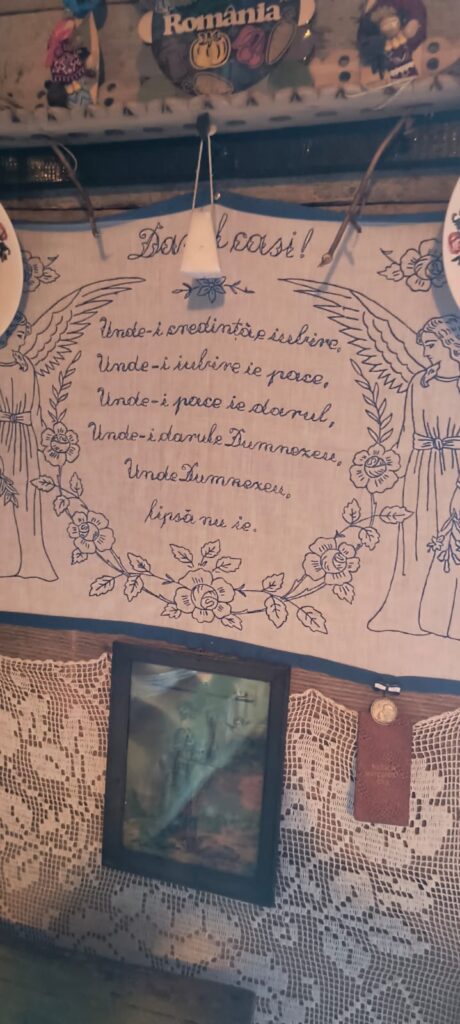 România
casi!
Unde-i credință, e iubire,
Unde-i iubire ie pace,
Unde-i pace ie darul,
Unde-i darul e Dumnezeu,
Unde Dumnezeu,
lipsă nu ie.